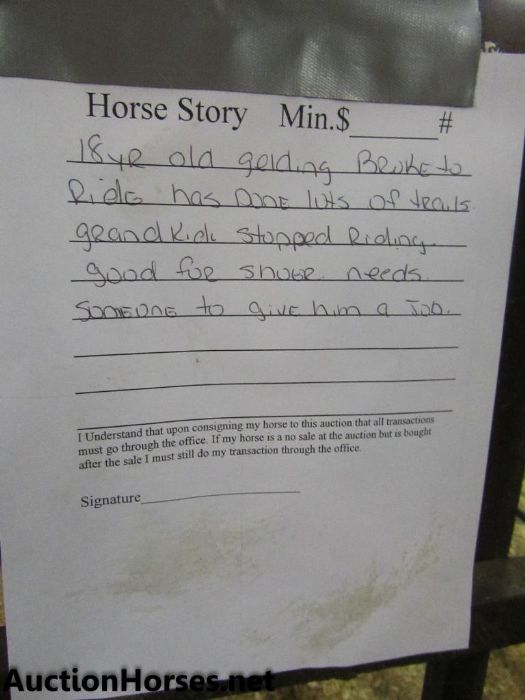 Horse Story Min.$______#
18 YR old gelding BROKE to
Ride has DONE lots of trails
grandkids stopped Riding.
good for shoer. needs
SOMEONE to give him a JOB.
I Understand that upon consigning my horse to this auction that all transactions
must go through the office. If my horse is a no sale at the auction but is bought
after the sale I must still do my transaction through the office.
Signature____________________
AuctionHorses.net